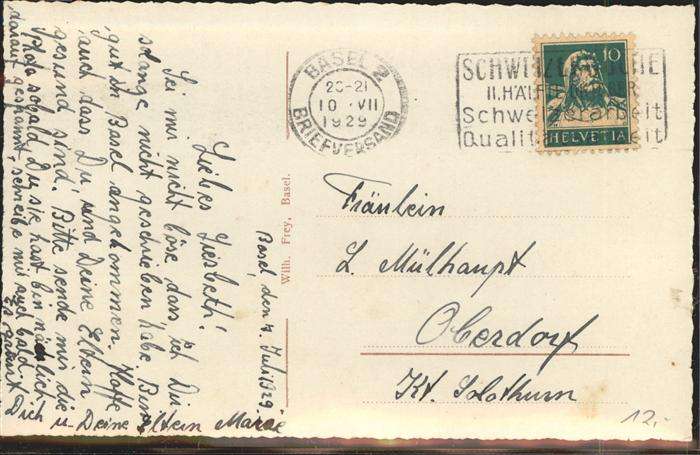 Basel, den 4. Juli 1929
Liebes Liesbeth!
Sei mir nicht böse dass ich Dir
solange nicht geschrieben habe. Bin
gut in Basel angekommen. Hoffe
auch dass Du, und Deine Eltern
gesund sind. Bitte sende mir die
Photo sobald Du sie hast bin nämlich
darauf gespannt, schreibe mir auch bald.
Es grüsst
Dich u. Deine Eltern Marie
Wilh. Frey, Basel.
BASEL 2
20-21
10. VII
1929
BRIEFVERSAND
II. HÄLFTE
Schweizerarbeit
Qualitätsarbeit
10
HELVETIA
Fräulein
L. Mülhaupt
Oberdorf
Kt. Solothurn
12.-